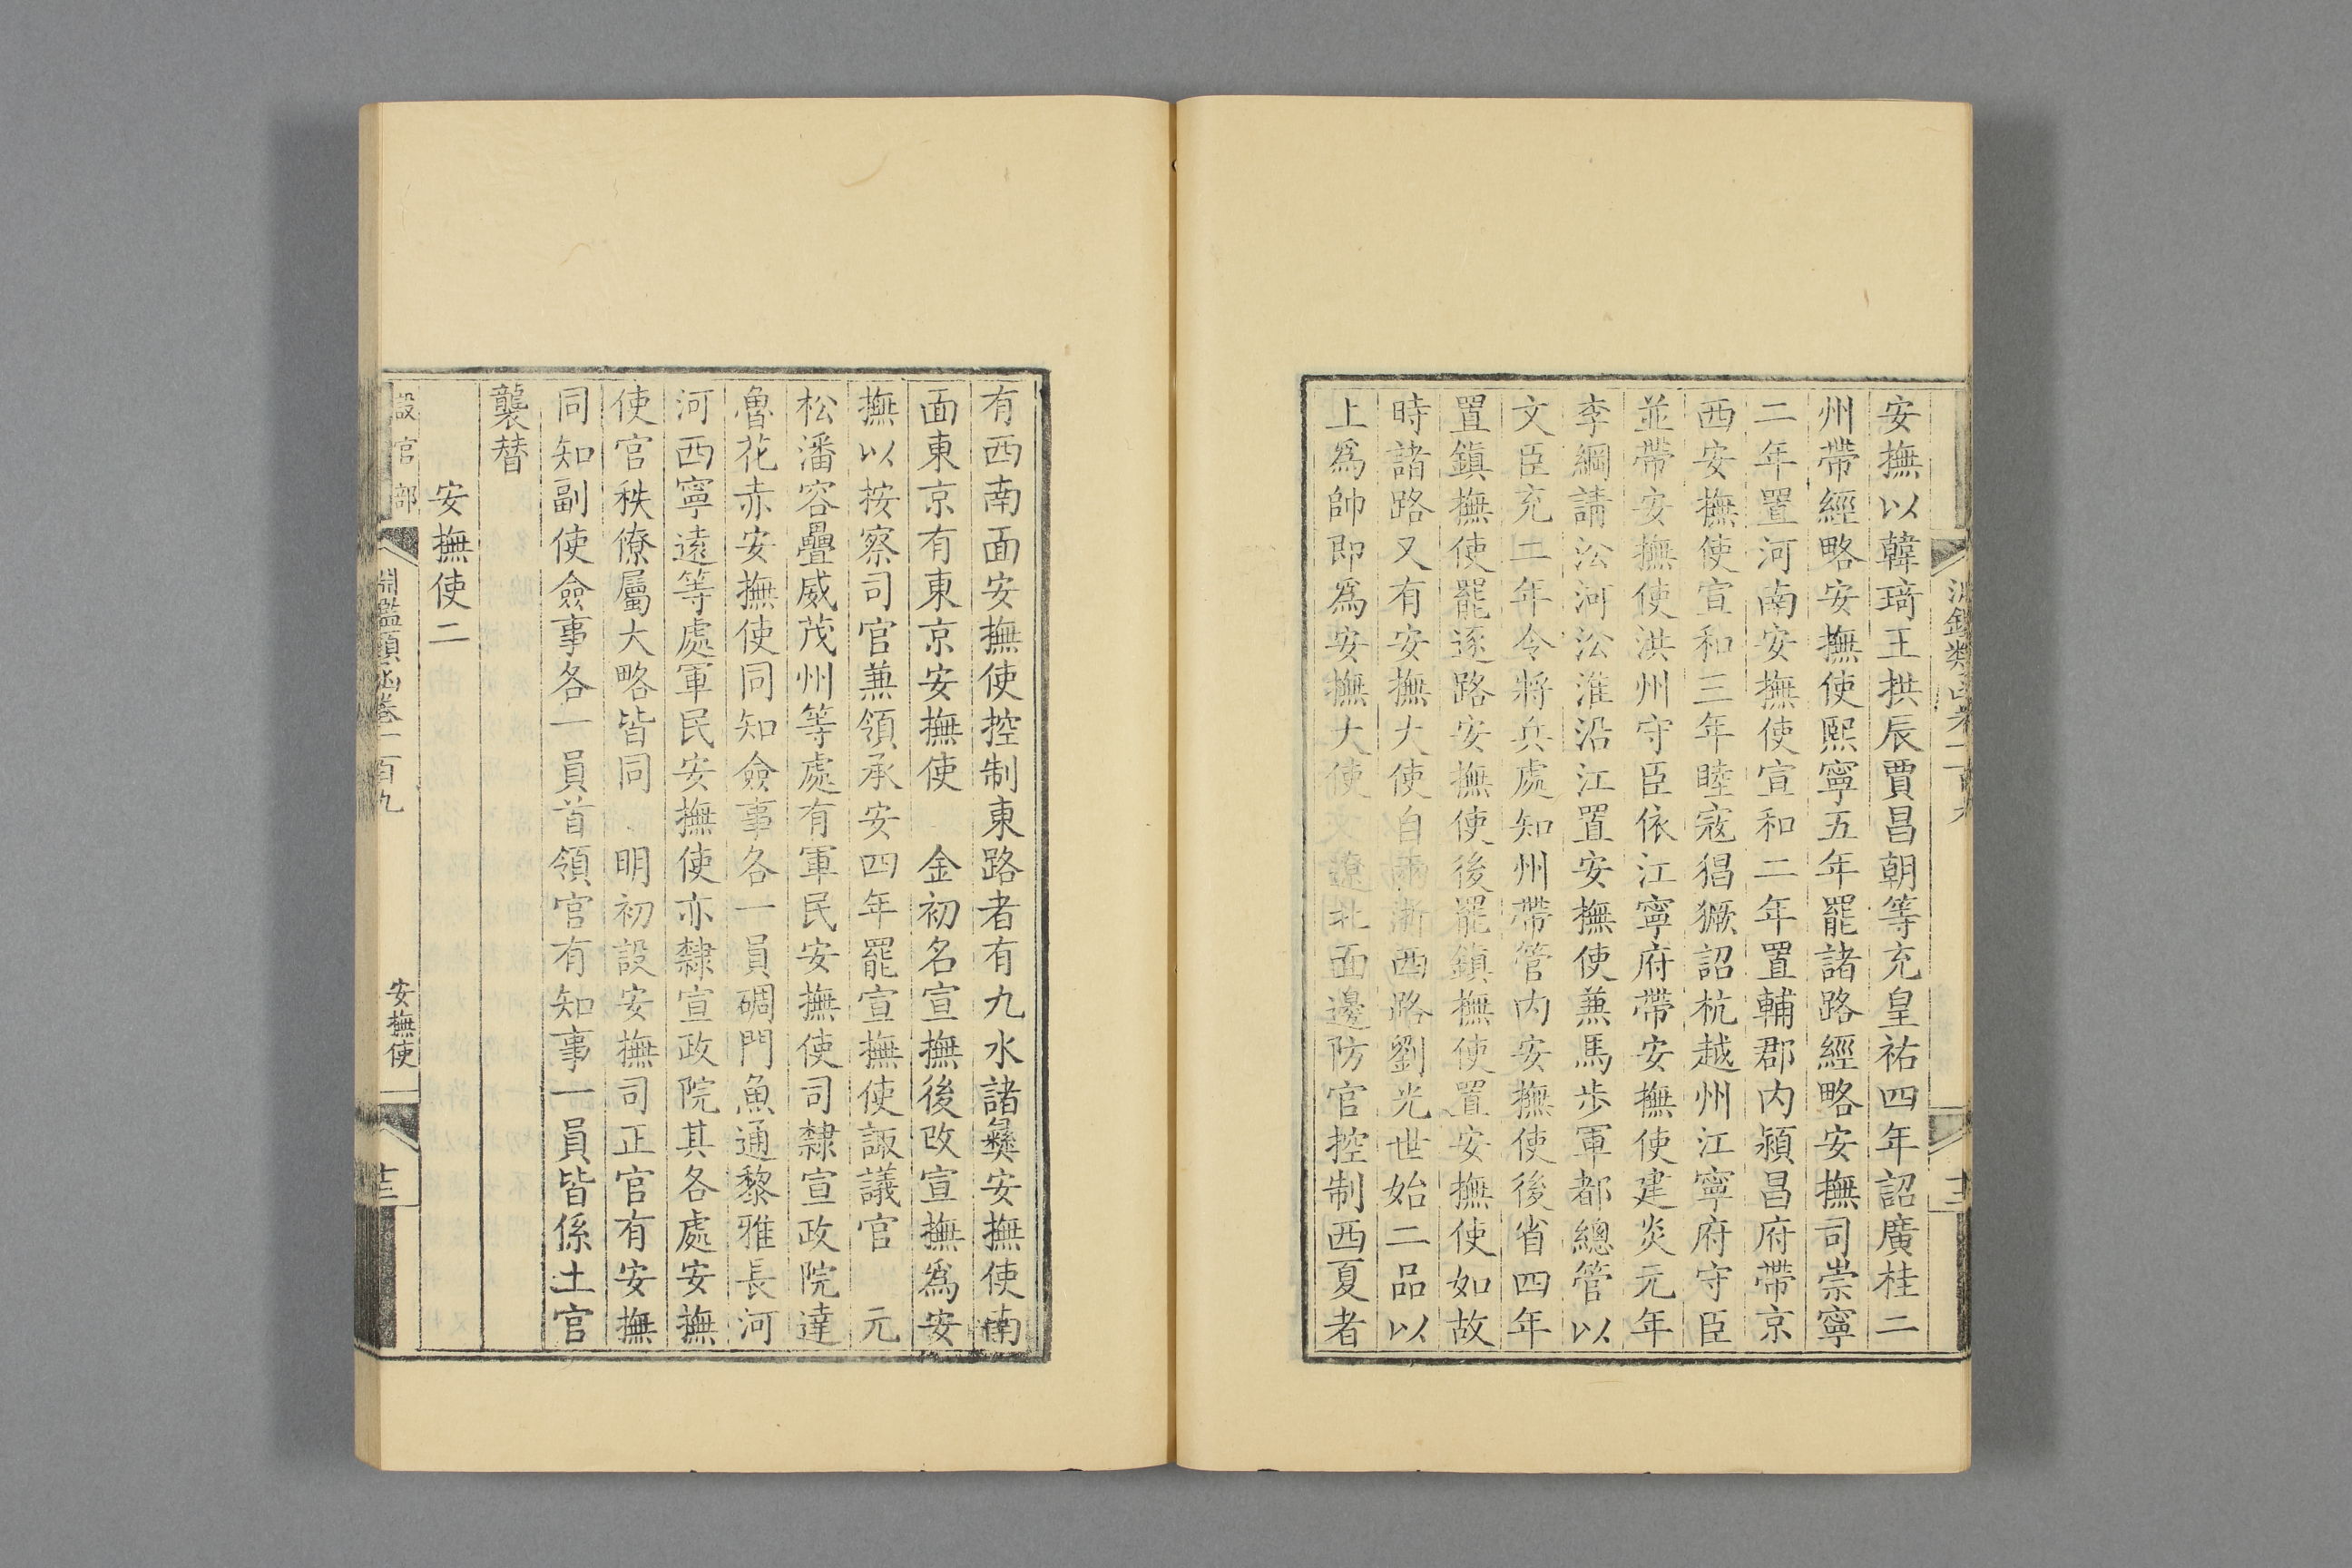 安撫以韓琦王拱辰賈昌朝等充皇祐四年詔廣桂二
州帶經略安撫使熙寧五年罷諸路經略安撫司崇寧
二年置河南安撫使宣和二年置輔郡內潁昌府帶京
西安撫使宣和三年睦寇猖獗詔杭越州江寧府守臣
並帶安撫使洪州守臣依江寧府帶安撫使建炎元年
李綱請沿河沿淮沿江置安撫使兼馬步軍都總管以
文臣充二年令將兵處知州帶管内安撫使後省四年
置鎮撫使罷逐路安撫使後罷鎮撫使置安撫使如故
時諸路又有安撫大使自兩浙西路劉光世始二品以
上爲帥即爲安撫大使 遼北面邊防官控制西夏者
有西南面安撫使控制東路者有九水諸彝安撫使南
面東京有東京安撫使 金初名宣撫後改宣撫爲安
撫以按察司官兼領承安四年罷宣撫使諏議官 元
松潘容疊威茂州等處有軍民安撫使司隸宣政院達
魯花赤安撫使同知僉事各一員碉門魚通黎雅長河
河西寧遠等處軍民安撫使亦隸宣政院其各處安撫
使官秩僚屬大略皆同 明初設安撫司正官有安撫
同知副使僉事各一員首領官有知事一員皆係土官
襲替
安撫使二
設官部 淵鑑類函卷一百九 安撫使 十三